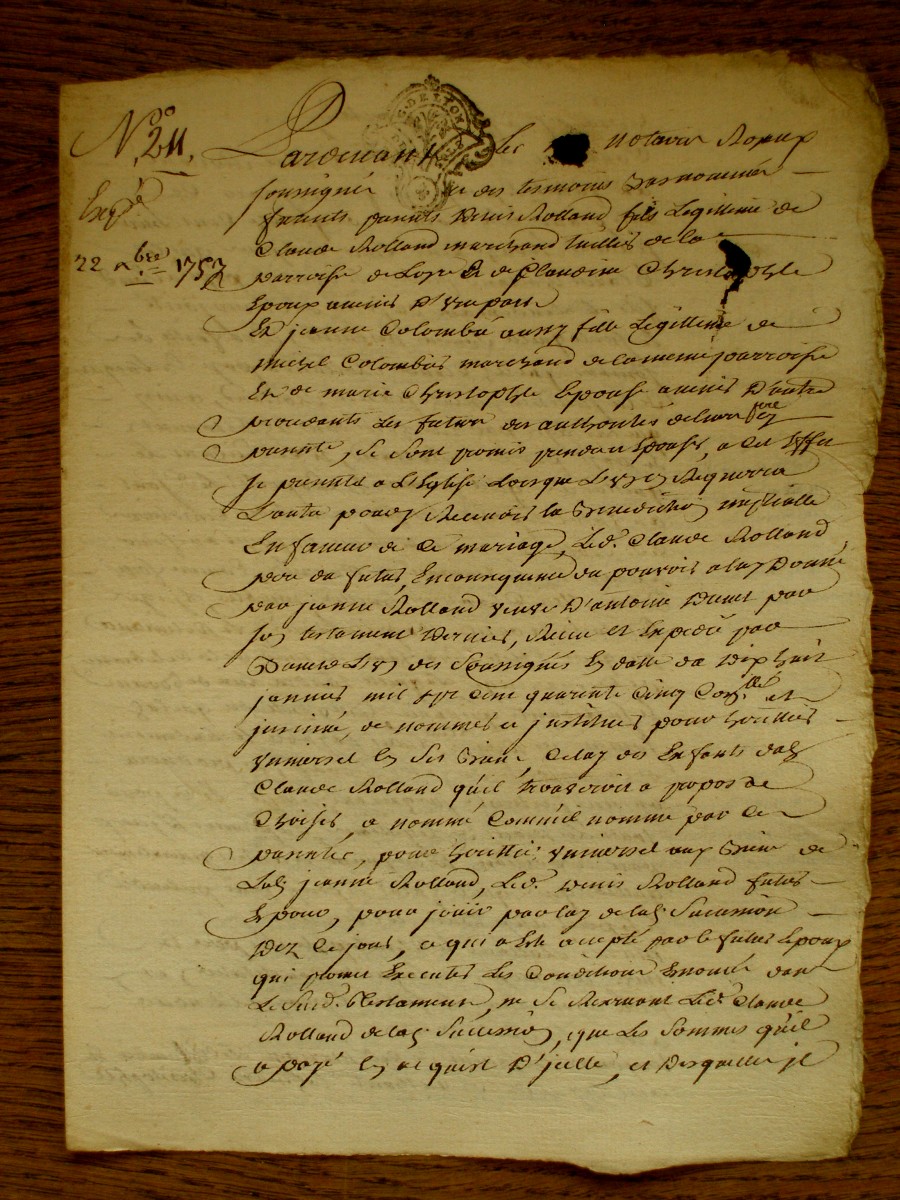 No 211.
Exp.ée
22 9bre 1753
G. DE LYON
Pardevant Les notaires Royaux
soussignés et des temoins bas nommés
furent presents Denis Rolland fils Legitime de
Claude Rolland marchand de la
parroisse de & de Claudine Christophle
Epoux amiés D'une part
Et jeanne Colombé aussy fille Legitime de
michel Colombés marchand de la meme parroisse
Et de marie Christophle Epouse amiés D'autre
procedants Les futurs des authorités de leurs
presente, Se Sont promis prendre Epouser, a Cet Effet
Se presenter a L'Eglise Lorsque L'un Requerra
L'autre pour y Recevoir la Benediction nuptialle
En faveur de Ce mariage, Led. Claude Rolland
pere du futur, En consequence du pouvoir a luy Donné
par jeanne Rolland veuve D'antoine par
Son testament dernier, Receu et Expedié par
L'un des Soussignés En datte du Dix huit
janvier mil Sept Cent quarente Cinq Con.llé et
jnsinué, de nommer et jnstituer pour heritier
universel En Ses Biens, Celuy des Enfants dud.
Claude Rolland qu'il trouveroit a propos de
Choisir, a nommé Comme il nomme par Ces
presentes, pour heritier universel aux Biens de
Lad. jeanne Rolland, Led. Denis Rolland futur
Epoux, pour jouir par luy de lad. Succession
Dez Ce jour, ce qui a Eté accepté par le futur Epoux
qui promet Executer Les Conditions Enoncées dans
Le Susd. testament, ne Se Reservant Led. Claude
Rolland de lad. Succession, que Les Sommes qu'il
a payé En acquist D'jcelle, et Desquelles jl